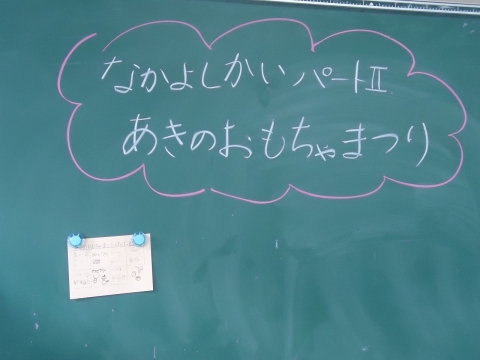 なかよしかいパートⅡ
あきのおもちゃまつり